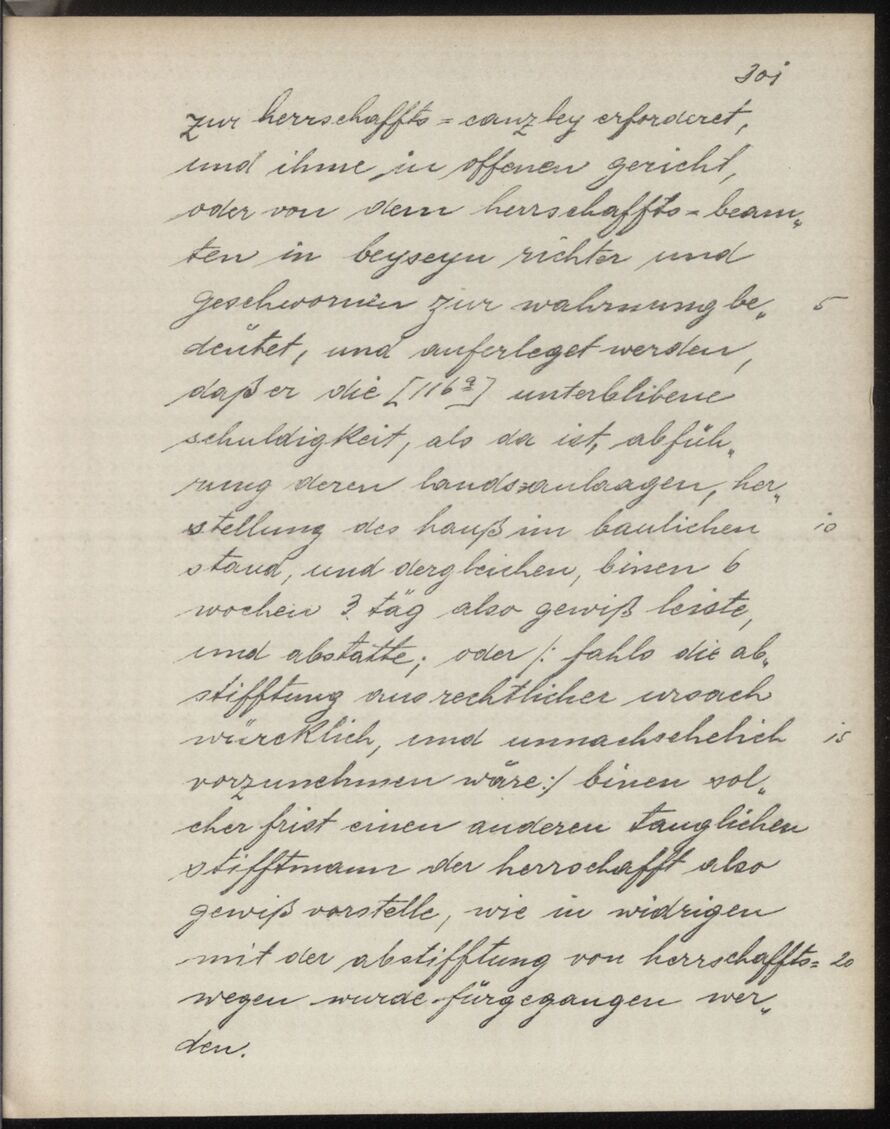 301
zur herrschaffts=canzley erforderet,
und ihme in offenen gericht,
oder von dem herrschaffts=beam„
ten in beyseyn richter und
geschwornen zur wahrnung be„ 5
deütet, und auferleget werden,
daß er die [116a] unterblibene
schuldigkeit, als da ist, abfüh„
rung deren landsanlaagen, her„
stellung des hauß im baulichen 10
stand, und dergleichen, binen 6
wochen 3. täg also gewiß leiste,
und abstatte; oder /: fahls die ab„
stifftung aus rechtlicher ursach
würcklich, und unnachsehelich 15
vorzunehmen wäre :/ binen sol„
cher frist einen anderen tauglichen
stifftmann der herrschafft also
gewiß vorstelle, wie in widrigen
mit der abstifftung von herrschaffts= 20
wegen wurde fürgegangen wer„
den.